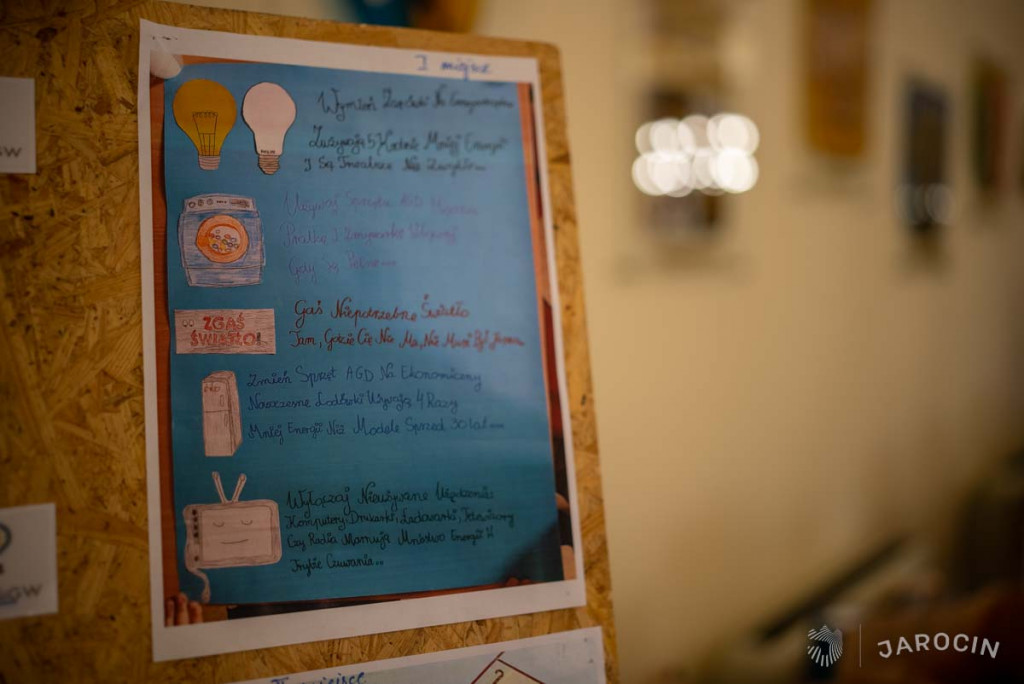 I miejsce
Wymień Żarówki Na Energooszczędne
Zużywają 5 Krotnie Mniej Energii
I Są Trwalsze Niż Zwykłe...
PHILIPS
Używaj Sprzętu AGD Mądrze
Pralkę I Zmywarkę Włączaj
Gdy Są Pełne...
ZGAŚ
ŚWIATŁO!
Gaś Niepotrzebne Światło
Tam, Gdzie Cię Nie Ma, Nie Musi Być Jasno...
Zmień Sprzęt AGD Na Ekonomiczny
Nowoczesne Lodówki Używają 4 Razy
Mniej Energii Niż Modele Sprzed 30 lat...
Wyłączaj Nieużywane Urządzenia
Komputery, Drukarki, Ładowarki, Telewizory
Czy Radia Marnują Mnóstwo Energii W
Trybie Czuwania...
miejsce
?
JAROCIN